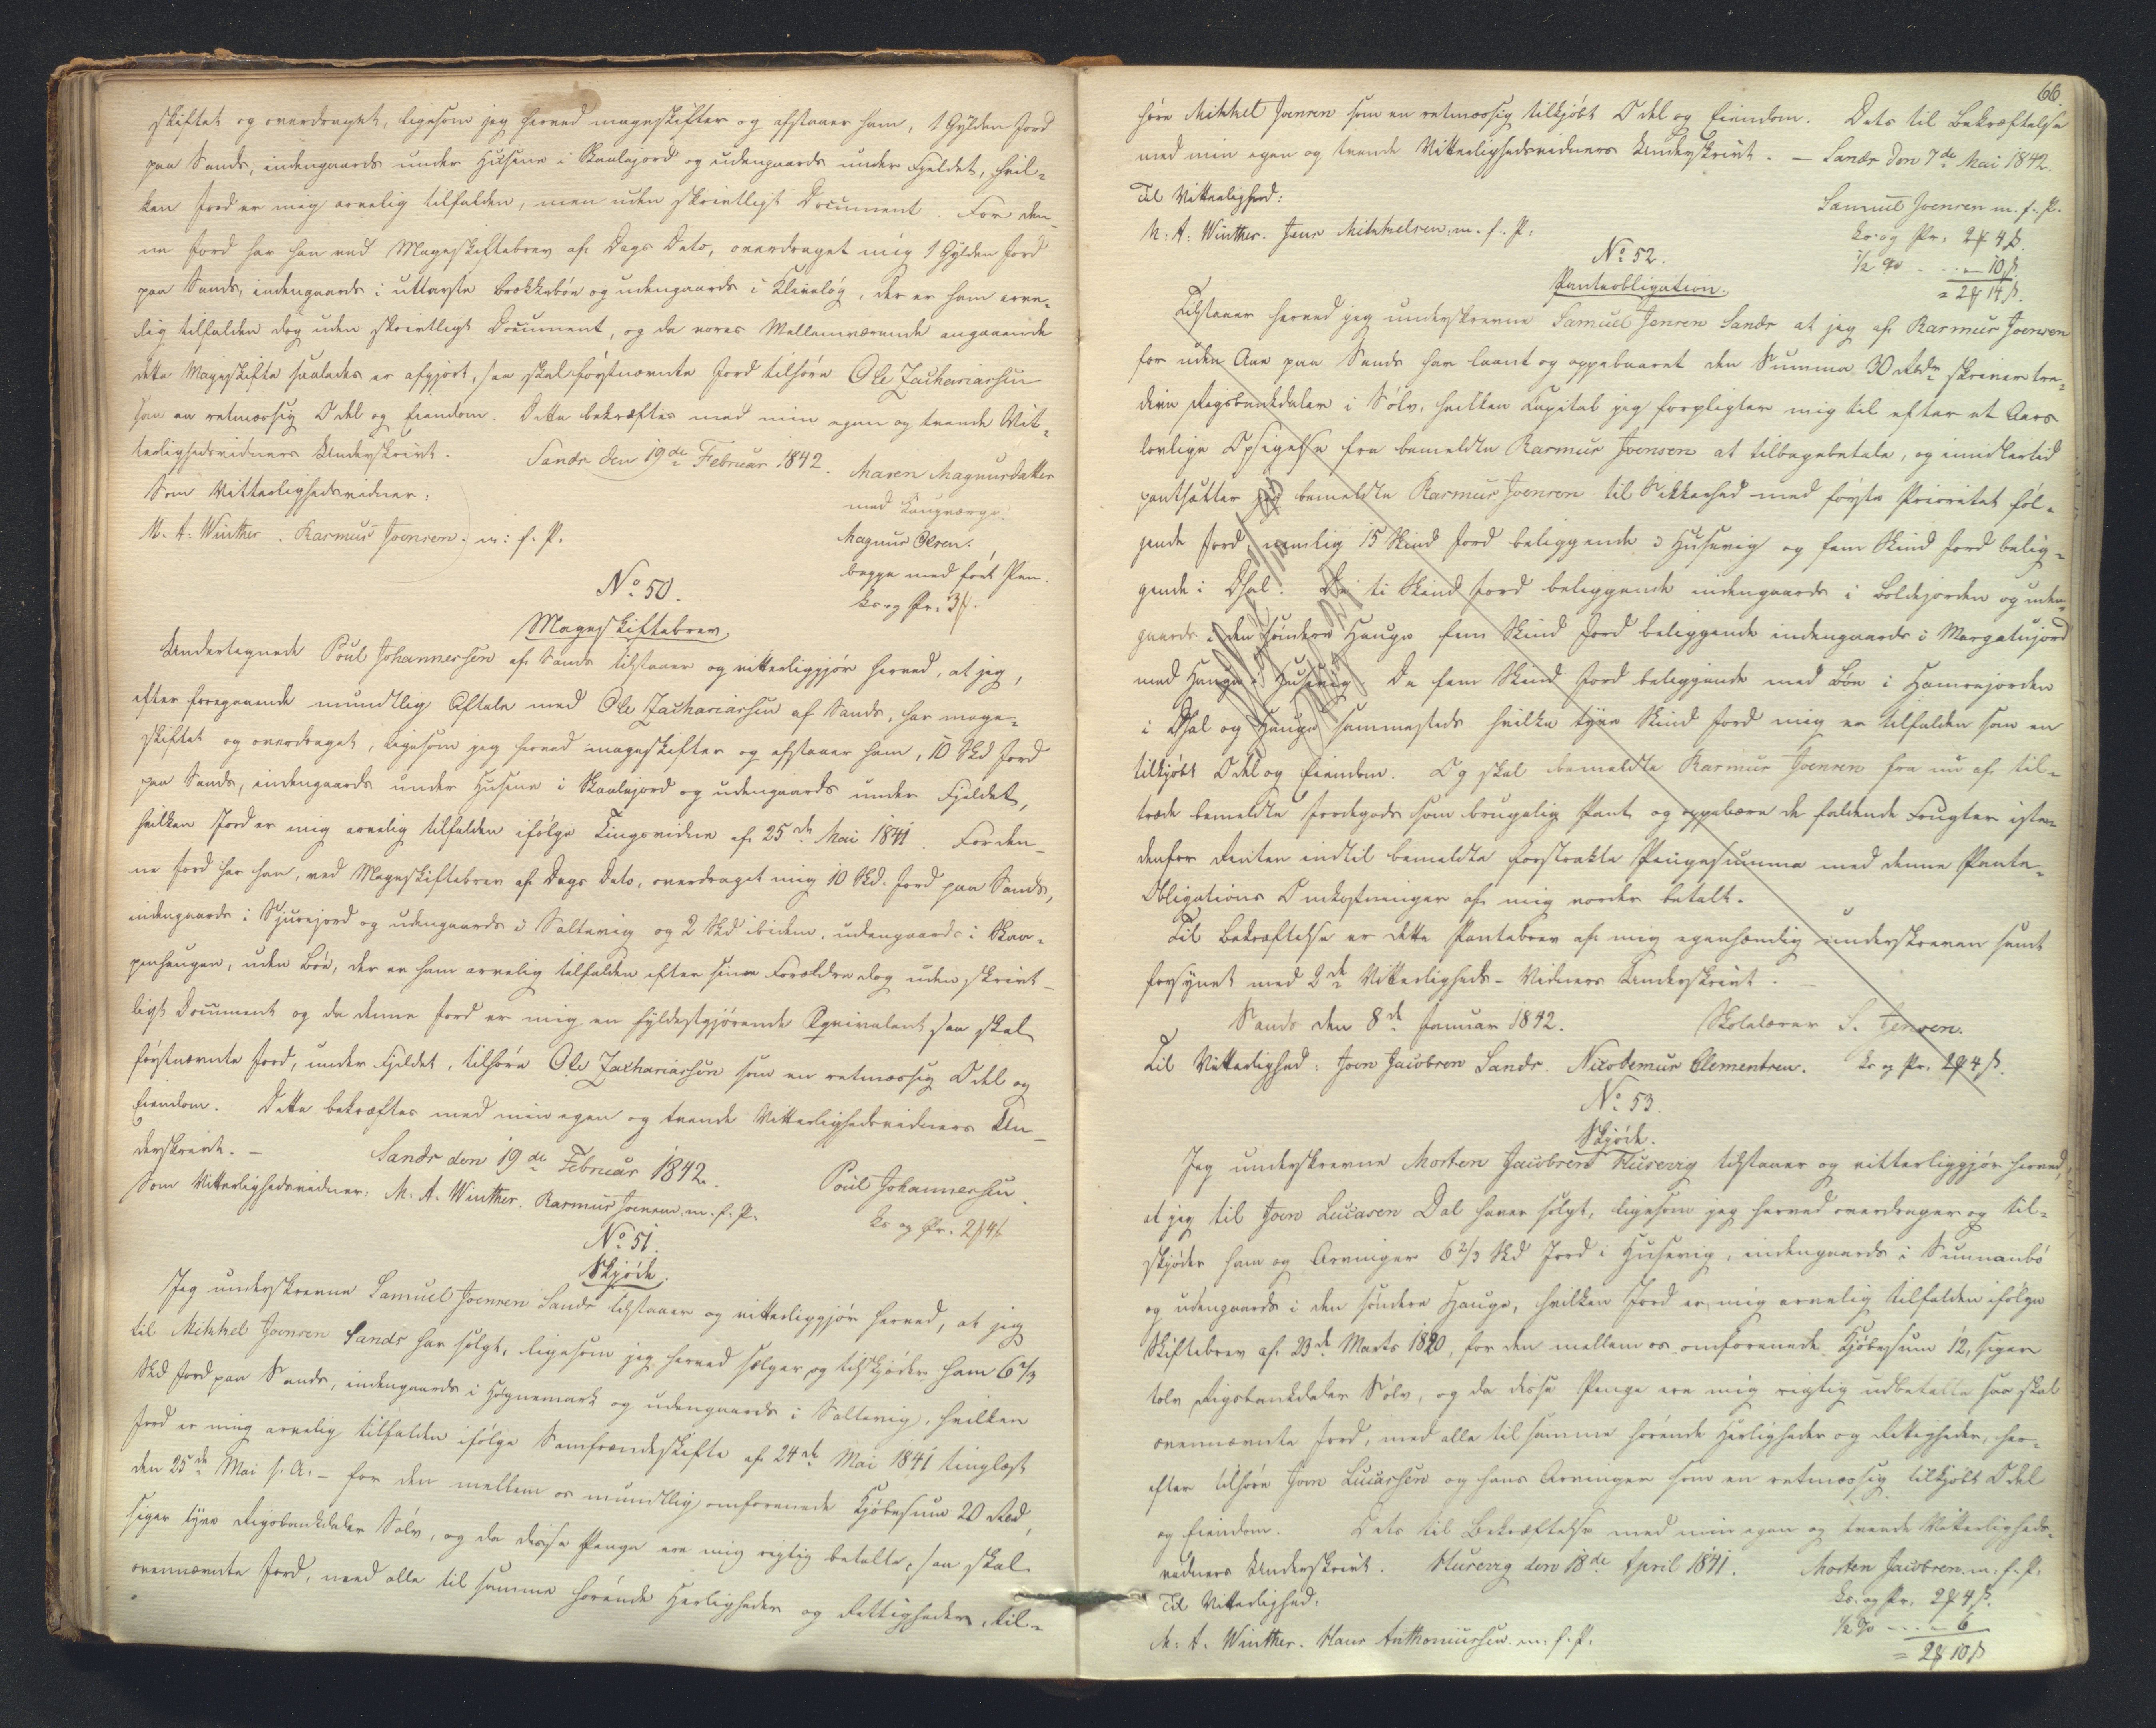 skiftet og overdraget, ligesom jeg herved mageskifter og afstaaer ham, 1 Gylden Jord
paa Sands, indengaards under Husene i Skaalajord og udengaards under Fjeldet, hvil-
ken Jord er mig arvelig tilfalden, men uden skrivtligt Document. For den-
ne Jord har han ved Mageskiftebrev af Dags Dato, overdraget mig 1 Gylden Jord
paa Sands, indengaards i uttarste Brekkubøe og udengaards i Kleivelög, der er ham arve-
lig tilfalden dog uden skrivtligt Document, og da vores Mellemværende angaaende
dette Mageskifte saaledes er afgjort, saa skal förstnævnte Jord tilhöre Ole Zachariassen
som en retmæssig Odel og Eiendom. Dette bekræftes med min egen og tvende Vit-
terlighedsvidners Underskrivt. Sands den 19de Februar 1842.
Maren Magnusdatter
Som Vitterlighedsvidner:
med Laugværge
M. A. Winther. Rasmus Joensen. m: f. P.
Magnus Olsen.
begge med ført Pen.
No 50.
Ls og Pr. 3ƒ.
Mageskiftebrev
Undertegnede Poul Johannessen af Sands tilstaaer og vitterliggjör herved, at jeg,
efter foregaaende mundtlig Aftale med Ole Zachariassen af Sands, har mage-
skiftet og overdraget, ligesom jeg herved mageskifter og afstaaer ham, 10 Skd Jord
paa Sands, indengaards under Husene i Skaalajord og udengaards under Fjeldet,
hvilken Jord er mig arvelig tilfalden ifölge Tingsvidne af 25de Mai 1841. For den-
ne Jord har han, ved Mageskiftebrev af Dags Dato, overdraget mig 10 Skd. Jord paa Sands,
indengaards i Sjurajord og udengaards i Saltevig og 2 Skd ibidem, udengaards i Skaa-
penhaugen, uden Böe, der er ham arvelig tilfalden efter sine Forældre dog uden skrivt-
ligt Document og da denne Jord er mig en fyldestgjörende Eqvivalent saa skal
förstnævnte Jord, under Fjeldet, tilhöre Ole Zachariassen som en retmæssig Odel og
Eiendom. Dette bekræftes med min egen og tvende Vitterlighedsvidners Un-
derskrivt. - Sands den 19de Februar 1842.
Poul Johannessen.
Som Vitterlighedsvidner: M. A. Winther. Rasmus Joensen, m. f. P.
Ls og Pr. 2ƒ4ß
No 51.
Skjöde.
Jeg underskrevne Samuel Joensen Sands tilstaaer og vitterliggjör herved, at jeg
til Mikkel Joensen Sands har solgt, ligesom jeg herved sælger og tilskjöder ham 6 2/3
Skd Jord paa Sands, indengaards i Högnemark og udengaards i Saltevig, hvilken
Jord er mig arvelig tilfalden ifölge Samfrændeskifte af 24de Mai 1841 tinglæst
den 25de Mai s. A. - for den mellem os mundtlig omforenede Kjöbesum 20 Rbd,
siger tyve Rigsbankdaler Sölv, og da disse Penge ere mig rigtig betalte, saa skal
ovennævnte Jord, med alle til samme hörende Herligheder og Rettigheder, til-
66.
höre Mikkel Joensen som en retmæssig tilkjöbt Odel og Eiendom. Dets til Bekræftelse
med min egen og tvende Vitterlighedsvidners Underskrivt. - Sands den 7de Mai 1842.
Til Vitterlighed:
Samuel Joensen m. f. P.
M: A: Winther. Jens Mikkelsen. m. f. P.
Ls og Pr. 2ƒ 4ß.
No 52.
1/2 % . . . - 10ß.
Panteobligation.
= 2ƒ 14ß.
Tilstaaer herved jeg underskrevne Samuel Jensen Sands at jeg af Rasmus Joensen
for uden Aae paa Sands har laant og oppebaaret den Summa 30 Rbdr skriver tre-
dive Rigsbankdaler i Sölv, hvilken Capital jeg forpligter mig til efter et Aars
lovlige Opsigelse fra bemeldte Rasmus Joensen at tilbagebetale, og imidlertid
pantsætter jeg bemeldte Rasmus Joensen til Sikkerhed med förste Prioritet föl-
gende Jord, nemlig 15 Skind Jord beliggende i Husevig og fem Skind Jord belig-
gende i Dhal. De ti Skind Jord beliggende indengaards i Boldejorden og uden-
gaards i den söndere Hauge fem Skind Jord beliggende indengaards i Margatujord
med Hauge i Husevig. De fem Skind Jord beliggende med Böe i Hamrejorden
i Dhal og Hauge sammesteds hvilke tyve Skind Jord mig er tilfalden som en
tilkjöbt Odel og Eiendom. Og skal bemeldte Rasmus Joensen fra nu af til-
træde bemeldte Jordegods som brugelig Pant og oppebære de faldende Frugter iste-
denfor Renter indtil bemeldte forstrakte Pengesumma med denne Pante-
Obligations Omkostninger af mig vorder betalt.
Til Bekræftelse er dette Pantebrev af mig egenhændig underskreven samt
forsynet med 2de Vitterligheds-Vidners Underskrivt. -
Sands den 8de Januar 1842. Skolelærer S. Jensen.
Til Vitterlighed: Joen Jacobsen Sands. Nicodemus Clementsen. Ls og Pr. 2ƒ 4ß.
No 53.
Skjöde.
Jeg underskrevne Morten Jacobsen Husevig tilstaaer og vitterliggjör herved,
at jeg til Joen Lucasen Dal haver solgt, ligesom jeg herved overdrager og til-
skjöder ham og Arvinger 6 2/3 Skd Jord i Husevig, indengaards i Sunnanbö
og udengaards i den söndere Hauge, hvilken Jord er mig arvelig tilfalden ifölge
Skiftebrev af 23de Marts 1820, for den mellem os omforenede Kjöbesum 12, siger
tolv Rigsbankdaler Sölv, og da disse Penge ere mig rigtig udbetalte saa skal
ovennævnte Jord, med alle til samme hörende Herligheder og Rettigheder, her-
efter tilhöre Joen Lucassen og hans Arvinger som en retmæssig tilkjöbt Odel
og Eiendom. Dets til Bekræftelse med min egen og tvende Vitterligheds-
vidners Underskrivt. Husevig den 18de April 1841. Morten Jacobsen. m: f. P.
Til Vitterlighed:
Ls. og Pr. 2ƒ 4ß.
M: A: Winther. Hans Anthoniussen. m: f. P.
1/2 % - - - 6
= 2ƒ 10ß